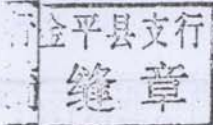 行金平县支行
缝章